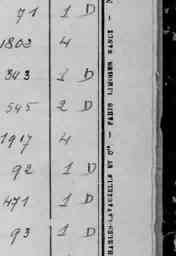 71 1 D
1803 4
343 1 D
545 2 D
1917 4
92 1 D
471 1 D
93 1 D
CHARLES-LAVAUZELLE ET Cie — PARIS LIMOGES NANCY —